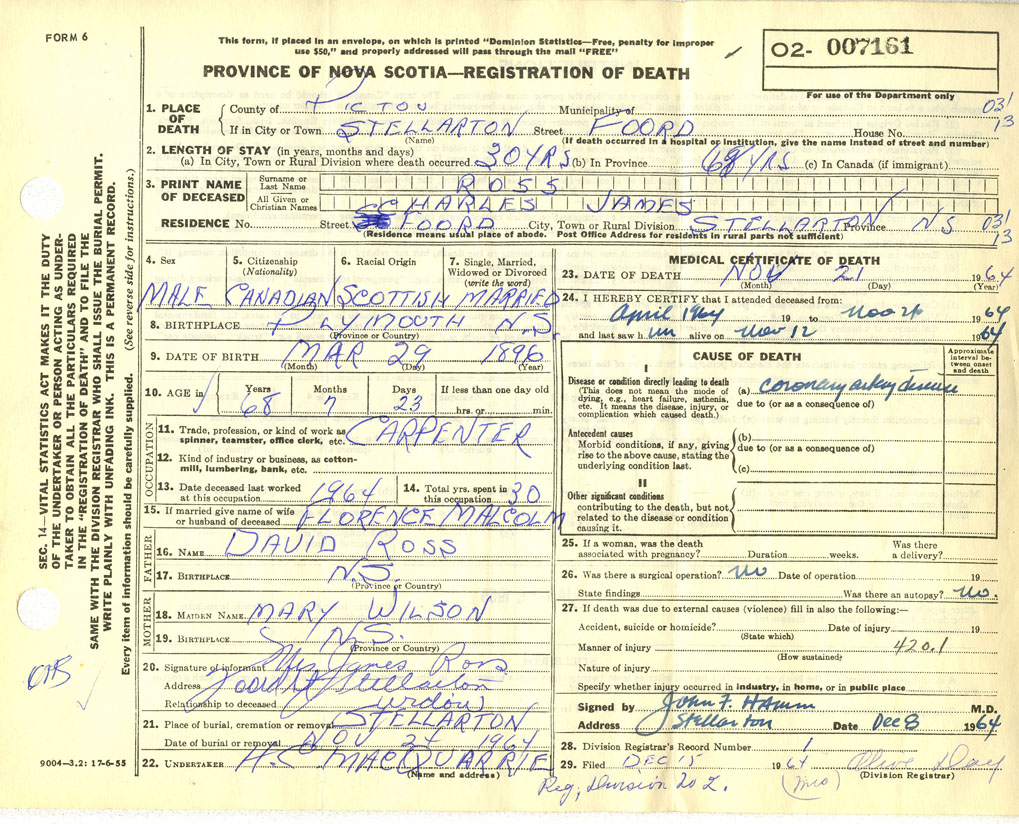 FORM 6
This form, if placed in an envelope, on which is printed "Dominion Statistics—Free, penalty for improper
use $50," and properly addressed will pass through the mail "FREE"
02- 007161
For use of the Department only
PROVINCE OF NOVA SCOTIA—REGISTRATION OF DEATH
SEC. 14—VITAL STATISTICS ACT MAKES IT THE DUTY
OF THE UNDERTAKER OR PERSON ACTING AS UNDER-
TAKER TO OBTAIN ALL THE PARTICULARS REQUIRED
IN THE "REGISTRATION OF DEATH" AND TO FILE THE
SAME WITH THE DIVISION REGISTRAR WHO SHALL ISSUE THE BURIAL PERMIT.
WRITE PLAINLY WITH UNFADING INK. THIS IS A PERMANENT RECORD.
Every item of information should be carefully supplied. (See reverse side for instructions.)
1. PLACE OF DEATH County of PICTOU Municipality of 031
If in City or Town STELLARTON Street FOORD House No. 13
(Name) (If death occurred in a hospital or institution, give the name instead of street and number)
2. LENGTH OF STAY (in years, months and days)
(a) In City, Town or Rural Division where death occurred 30 YRS (b) In Province 68 YRS (c) In Canada (if immigrant)
3. PRINT NAME OF DECEASED Surname or Last Name ROSS
All Given or Christian Names CHARLES JAMES
RESIDENCE No. Street FOORD City, Town or Rural Division STELLARTON Province NS 031
(Residence means usual place of abode. Post Office Address for residents in rural parts not sufficient) 13
4. Sex 5. Citizenship (Nationality) 6. Racial Origin 7. Single, Married, Widowed or Divorced (write the word)
MALE CANADIAN SCOTTISH MARRIED
8. BIRTHPLACE PLYMOUTH N.S.
(Province or Country)
9. DATE OF BIRTH MAR 29 1896
(Month) (Day) (Year)
10. AGE in Years Months Days If less than one day old
68 7 23 hrs. or min.
OCCUPATION
11. Trade, profession, or kind of work as spinner, teamster, office clerk, etc. CARPENTER
12. Kind of industry or business, as cotton-
mill, lumbering, bank, etc.
13. Date deceased last worked at this occupation 1964 14. Total yrs. spent in this occupation 30
15. If married give name of wife or husband of deceased FLORENCE MALCOLM
FATHER
16. NAME DAVID ROSS
17. BIRTHPLACE N.S.
(Province or Country)
MOTHER
18. MAIDEN NAME MARY WILSON
19. BIRTHPLACE N.S.
(Province or Country)
20. Signature of informant Mrs James Ross
Address Foord St Stellarton
Relationship to deceased
21. Place of burial, cremation or removal STELLARTON
Date of burial or removal NOV 24 1964
22. UNDERTAKER H.C. MACQUARRIE
(Name and address)
9004—3.2: 17-6-55
MEDICAL CERTIFICATE OF DEATH
23. DATE OF DEATH NOV 21 1964
(Month) (Day) (Year)
24. I HEREBY CERTIFY that I attended deceased from:
April 1964 19 to Nov 21 1964
and last saw h im alive on Nov 12 1964
CAUSE OF DEATH
Approximate interval be-
tween onset and death
I
Disease or condition directly leading to death
(This does not mean the mode of
dying, e.g., heart failure, asthenia,
etc. It means the disease, injury, or
complication which caused death.)
(a) coronary artery disease
due to (or as a consequence of)
Antecedent causes
Morbid conditions, if any, giving
rise to the above cause, stating the
underlying condition last.
(b)
due to (or as a consequence of)
(c)
II
Other significant conditions
contributing to the death, but not
related to the disease or condition
causing it.
25. If a woman, was the death Was there
associated with pregnancy? Duration weeks. a delivery?
26. Was there a surgical operation? no Date of operation 19
State findings Was there an autopsy? no.
27. If death was due to external causes (violence) fill in also the following:—
Accident, suicide or homicide? Date of injury 19
(State which)
Manner of injury 420.1
(How sustained)
Nature of injury
Specify whether injury occurred in industry, in home, or in public place
Signed by John F. Hamm M.D.
Address Stellarton Date Dec 8 1964
28. Division Registrar's Record Number 1
29. Filed DEC 15 1964 Olive Day
(Division Registrar)
Reg. Division No 2. (Mrs)